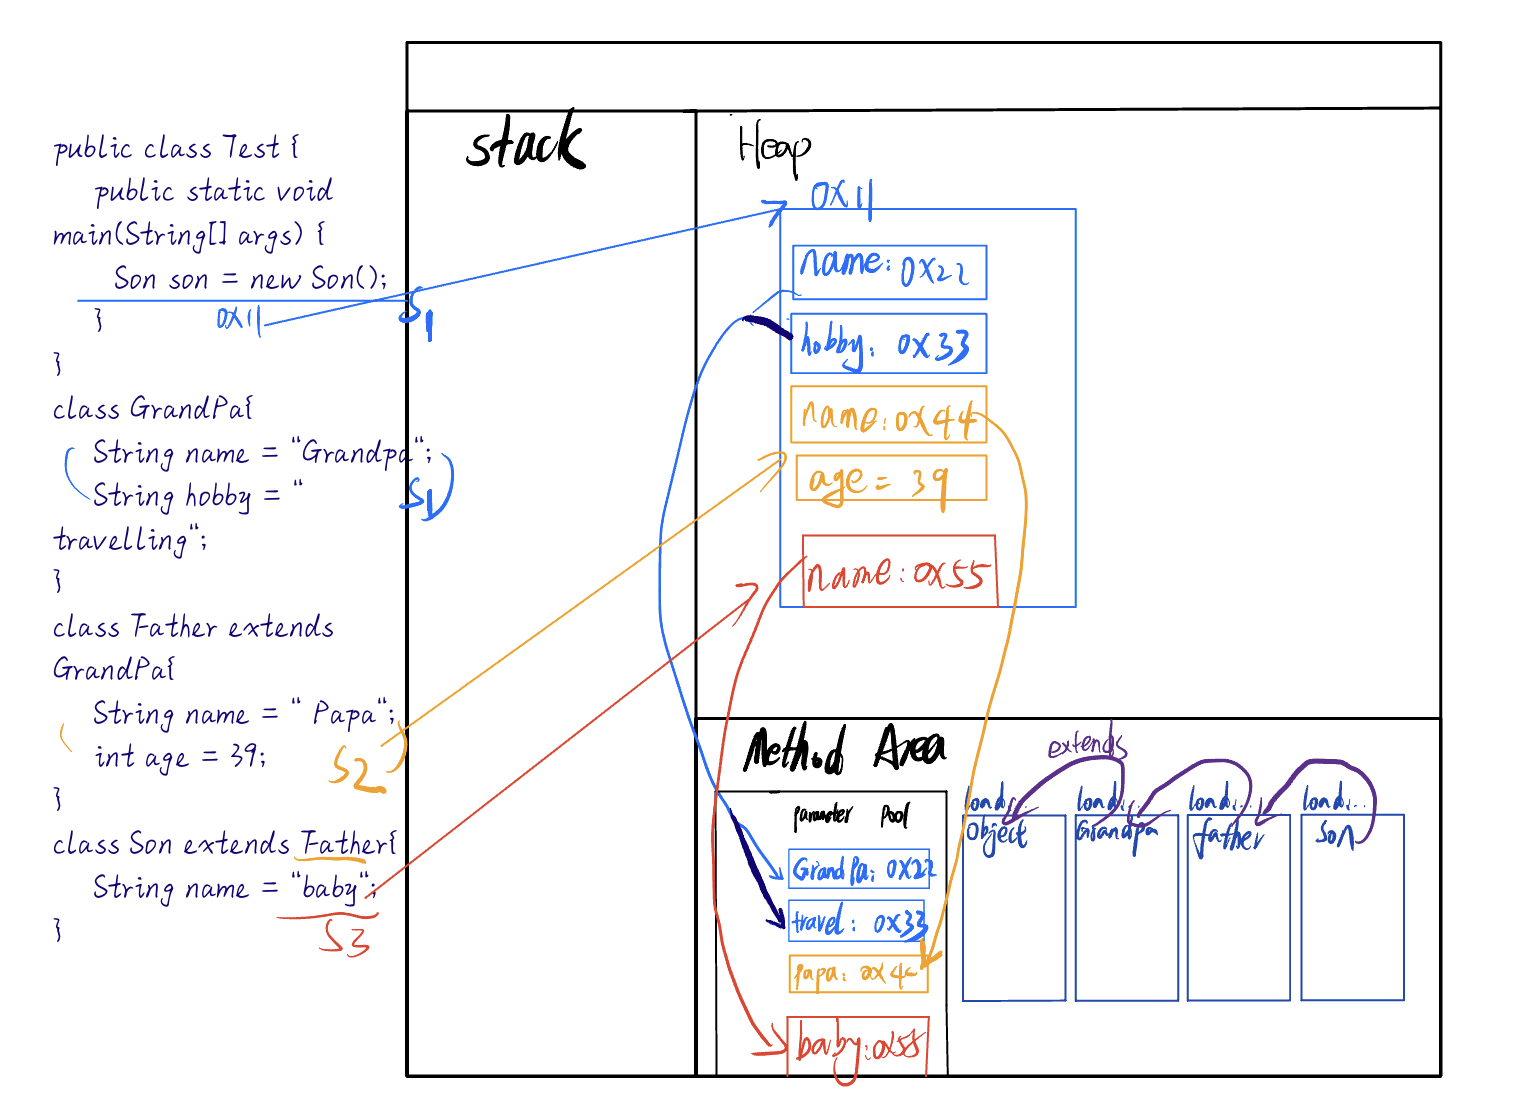 public class Test {
public static void
main(String[] args) {
Son son = new Son();
}
0x11
S1
}
class GrandPa{
String name = "Grandpa";
String hobby = "
S1
travelling";
}
class Father extends
GrandPa{
String name = " Papa";
int age = 39;
S2
}
class Son extends Father{
String name = "baby";
S3
}
stack
Heap
0x11
name: 0x22
hobby: 0x33
name: 0x44
age = 39
name: 0x55
Method Area
parameter pool
GrandPa: 0x22
travel: 0x33
papa: 0x4
baby: 0x55
extends
load... load... load... load...
Object Grandpa father son